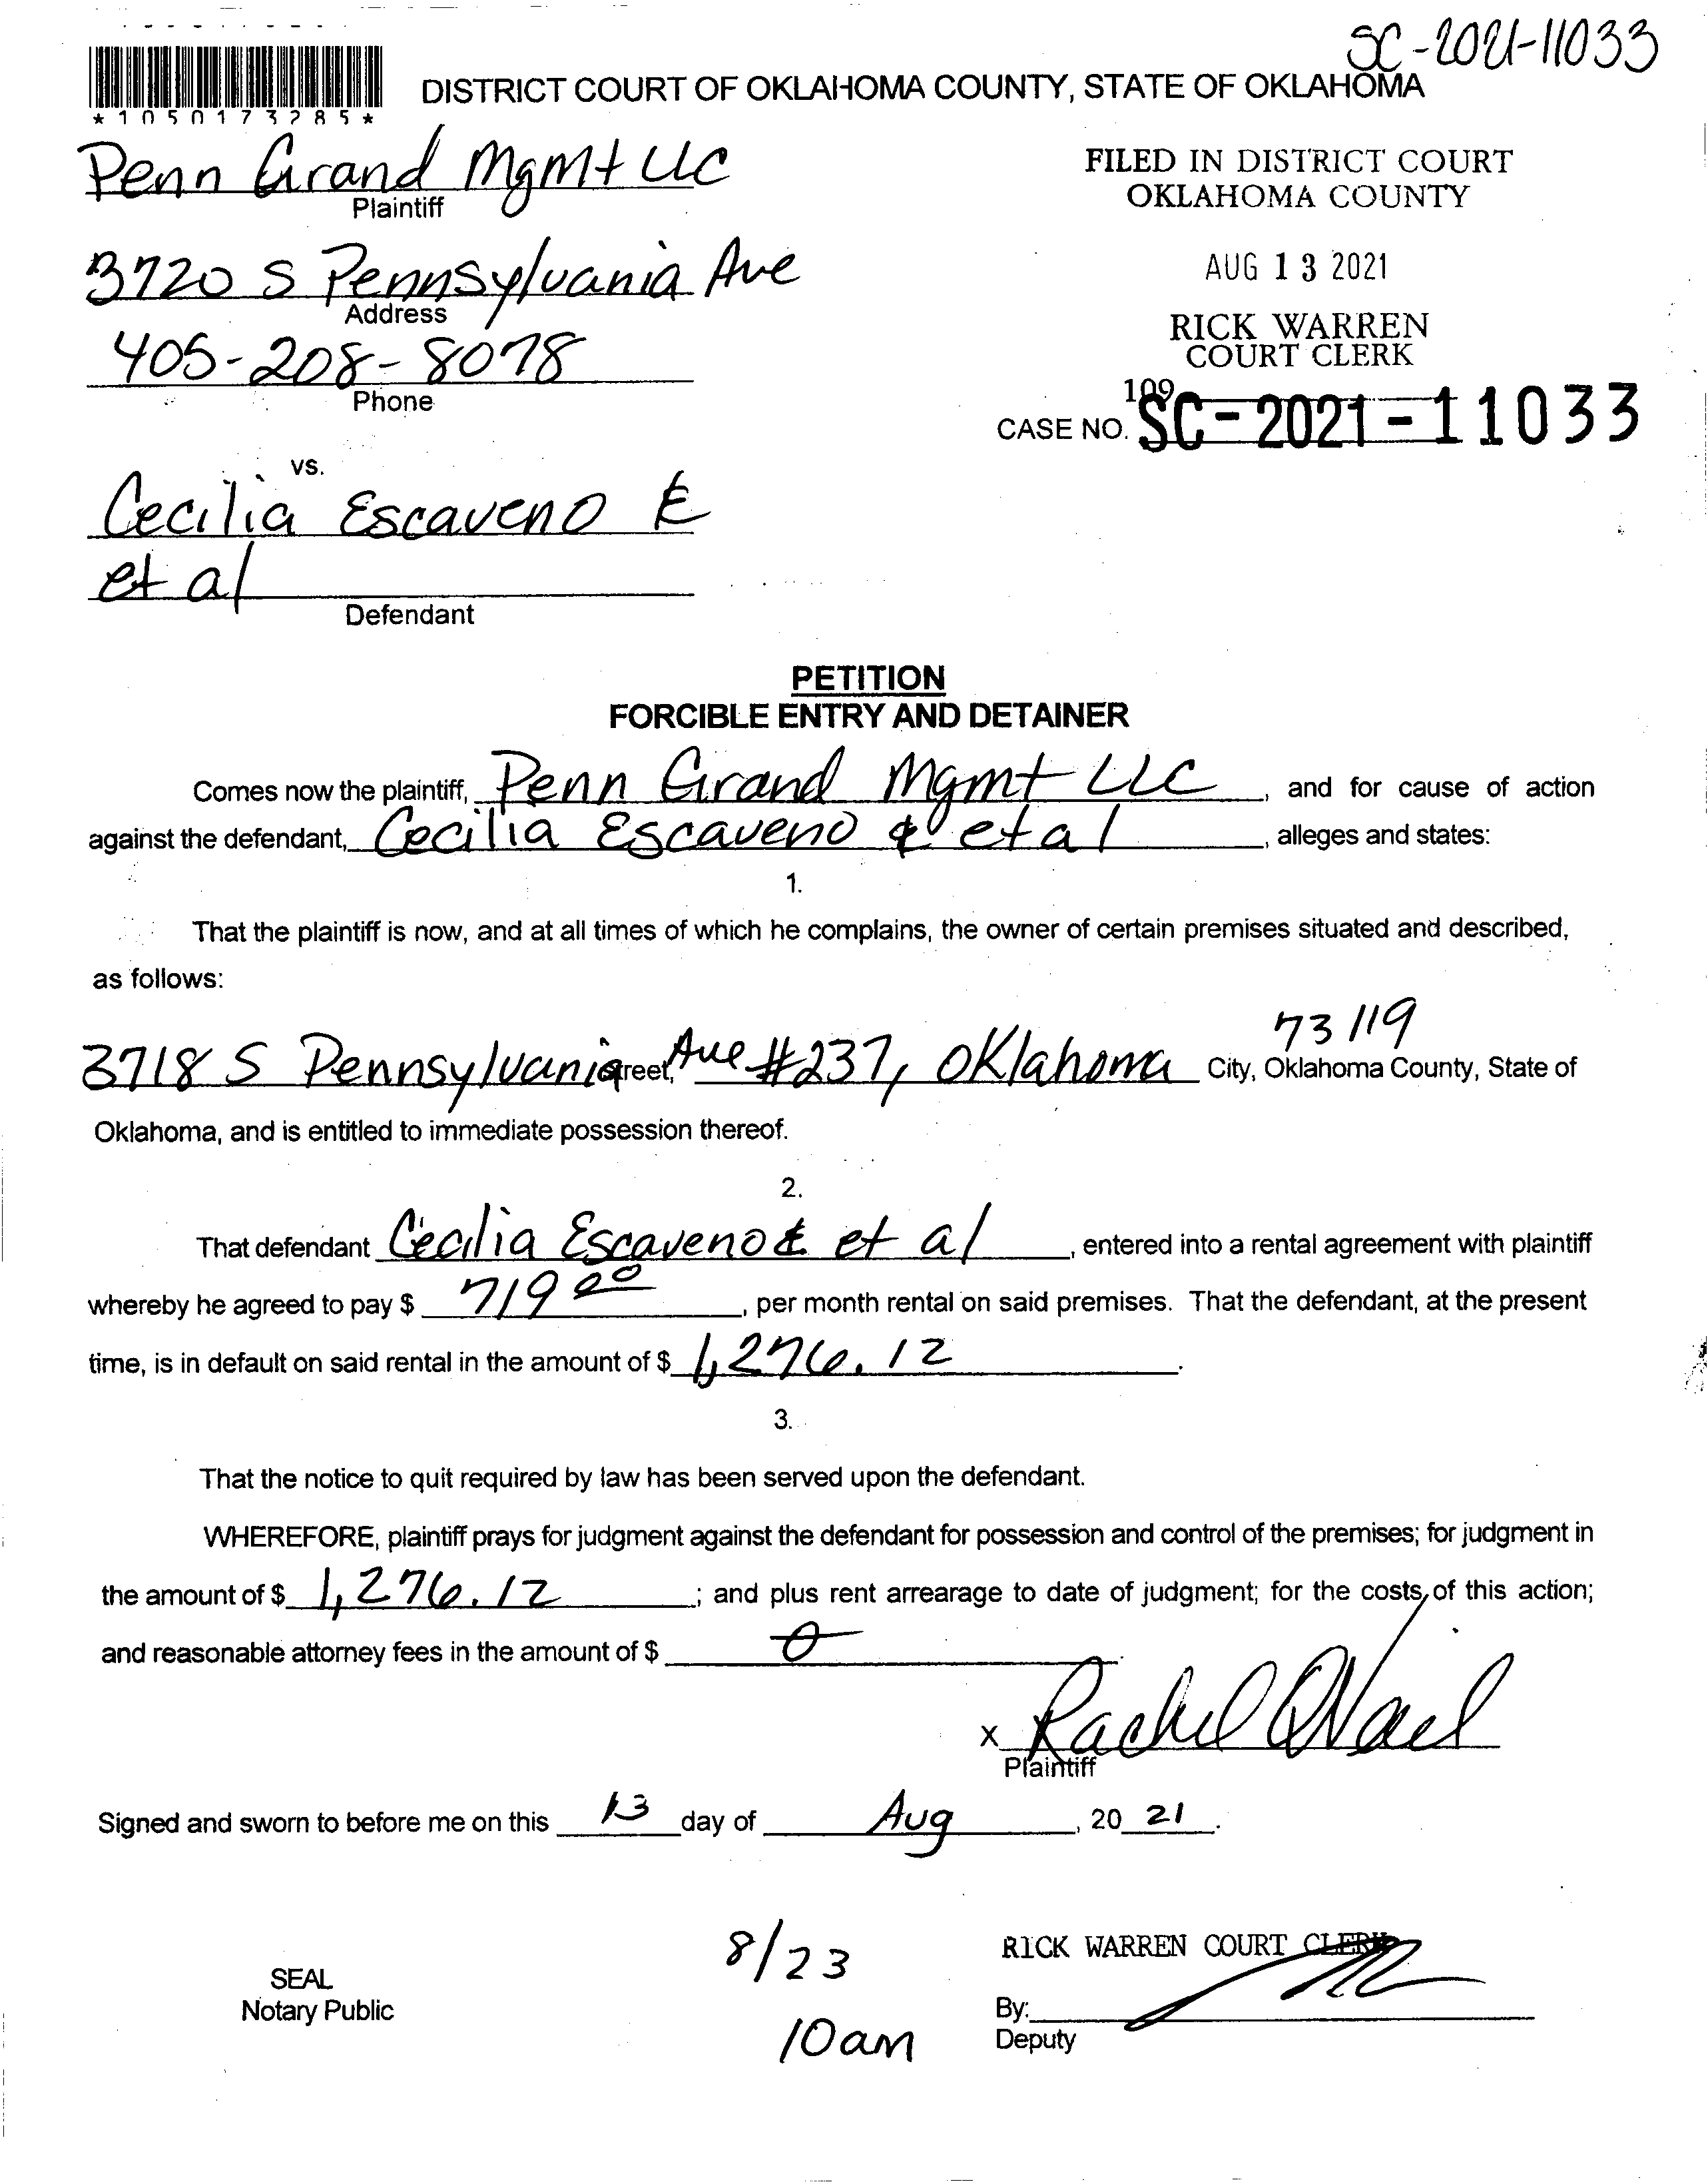 SC-2021-11033
DISTRICT COURT OF OKLAHOMA COUNTY, STATE OF OKLAHOMA
*1050173285*
Penn Grand Mgmt LLC
Plaintiff
FILED IN DISTRICT COURT
OKLAHOMA COUNTY
3720 S Pennsylvania Ave
Address
AUG 13 2021
405-208-8078
Phone
RICK WARREN
COURT CLERK
109
CASE NO. SC-2021-11033
vs.
Cecilia Escaveno &
et al
Defendant
PETITION
FORCIBLE ENTRY AND DETAINER
Comes now the plaintiff, Penn Grand Mgmt LLC, and for cause of action
against the defendant, Cecilia Escaveno & et al, alleges and states:
1.
That the plaintiff is now, and at all times of which he complains, the owner of certain premises situated and described,
as follows:
73119
3718 S Pennsylvania Street, Ave #237, Oklahoma City, Oklahoma County, State of
Oklahoma, and is entitled to immediate possession thereof.
2.
That defendant Cecilia Escaveno & et al, entered into a rental agreement with plaintiff
whereby he agreed to pay $ 719.00, per month rental on said premises. That the defendant, at the present
time, is in default on said rental in the amount of $ 1,276.12.
3.
That the notice to quit required by law has been served upon the defendant.
WHEREFORE, plaintiff prays for judgment against the defendant for possession and control of the premises; for judgment in
the amount of $ 1,276.12; and plus rent arrearage to date of judgment; for the costs of this action;
and reasonable attorney fees in the amount of $ 0.
X Rachel ONail
Plaintiff
Signed and sworn to before me on this 13 day of Aug, 20 21.
8/23
10am
SEAL
Notary Public
RICK WARREN COURT CLERK
By:
Deputy